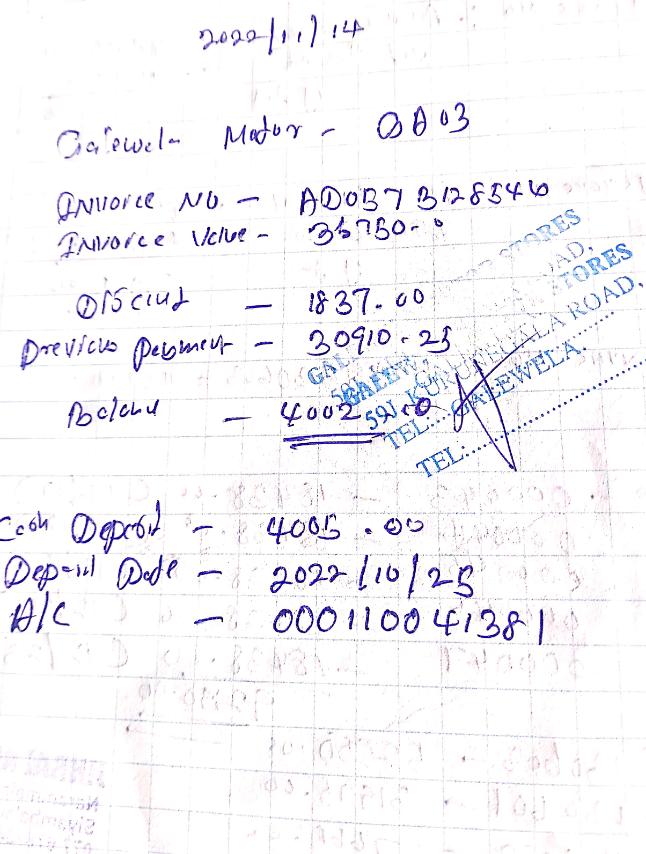 2022/11/14
Galewela Motor - GA03
Invoice No. - AD0B7B128546
Invoice Value - 36750-0
Disciud - 1837.00
Previous Payment - 30910.25
Balanu - 4002.00
Cash Deposit - 4005.00
Deposit Date - 2022/10/25
A/C - 000110041381
STORES
ROAD,
STORES
GALEWELA
59/ KURUNEGALA ROAD,
TEL:... GALEWELA.
TEL: